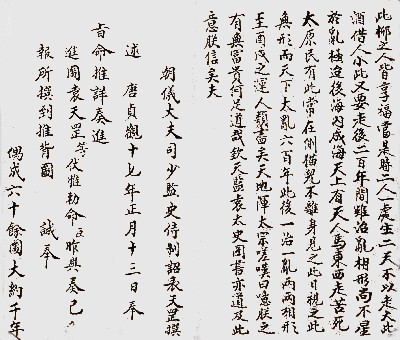 此鄉之人皆享福當是時二人一處生二天不以走大此
酒借人小此又要走後二百年間雖治亂相形尚不星
於亂極迫後海內咸海天上有天人馬東西走苦死
太原民有此常在側猫兒不離身見之此日視之此
無形而天下大亂六百年此後一治一亂兩兩相形
至酉戍之運人類盡矣天地渾太宗嗟嘆曰憶朕之
有無富貴何足道哉欽天監袁太史圖書亦道及此
意朕信矣夫
朝儀大夫司少監史侍制詔袁天罡撰
述唐貞觀十七年正月十三日奉
旨命推詳奏進
進圖袁天罡等伏惟勅命臣昨與奏已
報所撰到推背圖 誠奉
偶成六十餘圖大約千年